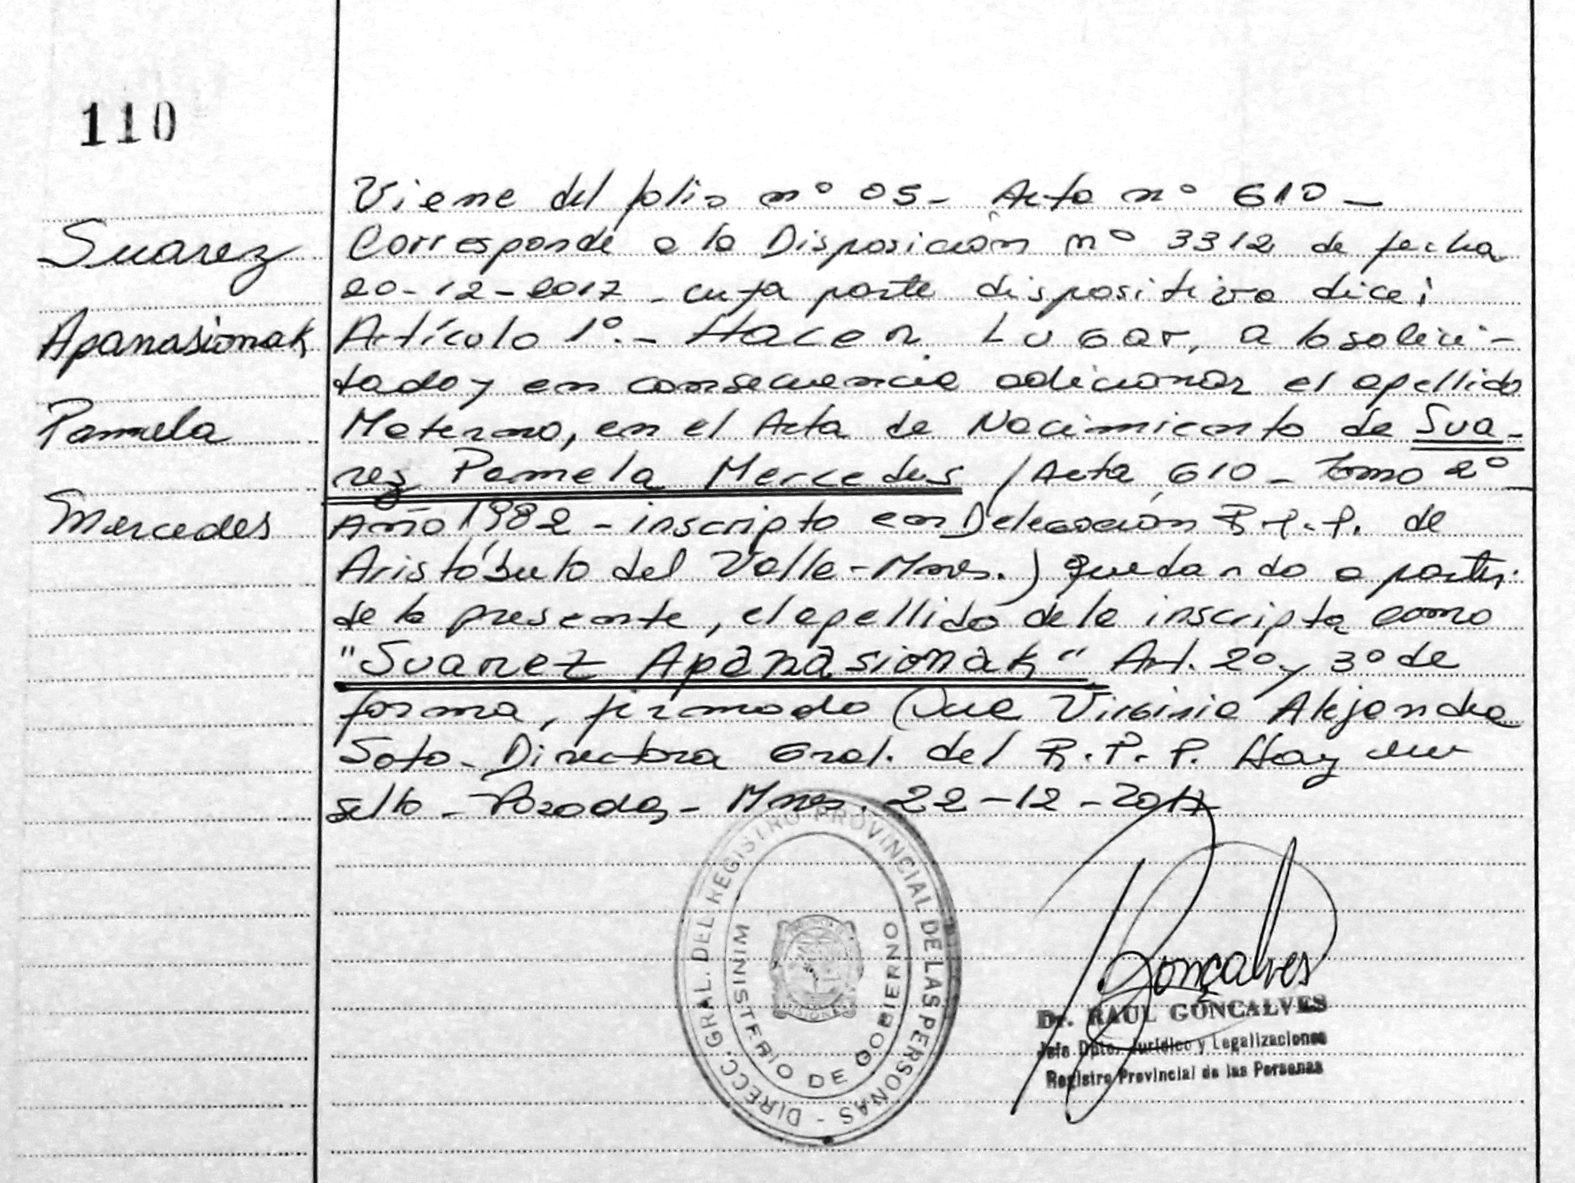 110
Suarez
Apanasionak
Pamela
Mercedes
Viene del folio nº 05- Acta nº 610-
Corresponde a la Disposición nº 3312 de fecha
20-12-2017 - cuya parte dispositiva dice:
Artículo 1º.- Hacer Lugar, a lo solici-
tado y en consecuencia adicionar el apellido
Materno, en el Acta de Nacimiento de Sua-
rez Pamela Mercedes (Acta 610 - Tomo 2º
Año 1982 - inscripto en Delegación R.P.P. de
Aristóbulo del Valle-Mnes.) quedando a partir
de la presente, el apellido de la inscripta como
"Suarez Apanasionak" Art. 2º y 3º de
forma, firmado Virginia Alejandra
Soto - Directora Gral. del R.P.P. Hay un
sello - Posadas - Mnes. 22-12-2017
DIRECC. GRAL. DEL REGISTRO PROVINCIAL DE LAS PERSONAS -
MINISTERIO DE GOBIERNO
MISIONES
Gonçalves
Dr. RAUL GONCALVES
Jefe Dpto. Jurídico y Legalizaciones
Registro Provincial de las Personas